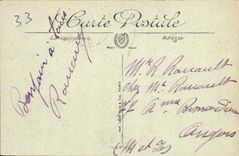 33
Carte Postale
Correspondance
Adresse
Bonjour à tous
Mr R Rouault
chez Mr Rouault
Angers
(M et L)